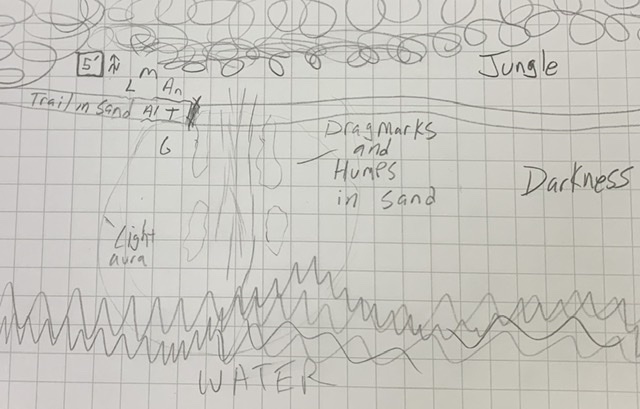 Jungle
5' N
m
L An
Trail in Sand Al T
G
Dragmarks
and
Humps
in Sand
Darkness
Light
aura
WATER